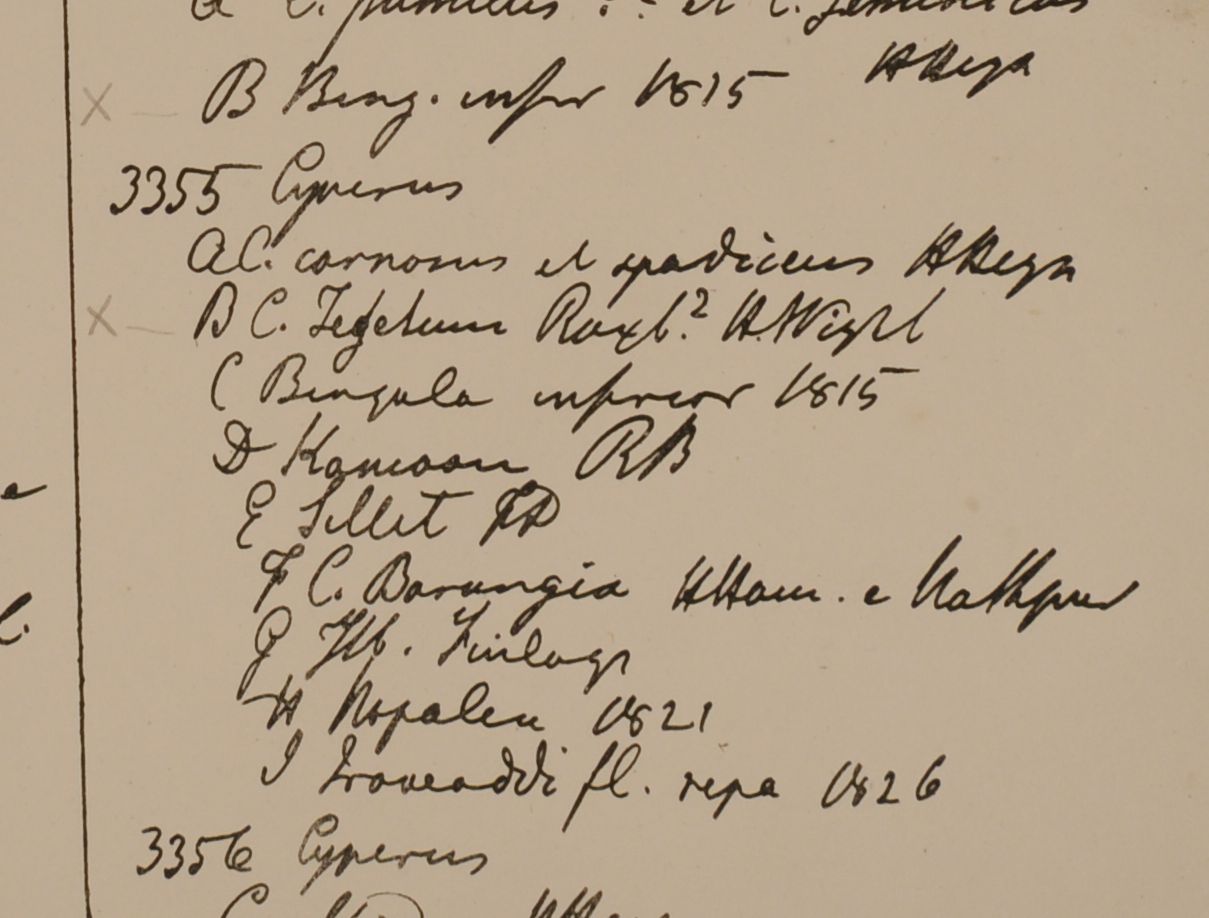 a C. pumilus ? et C.
B Beng. infer 1815 HHeyn
3355 Cyperus
a C. carnosus et spadiceus HHeyn
B C. Tegetum Roxb.? H. Wight
C Bengala inferior 1815
D Kamoon RB
E Sillet FD
F C. Barungia HHam. e Nathpur
G Hb. Finlays
H Napalea 1821
I Irawaddi fl. repa 1826
3356 Cyperus